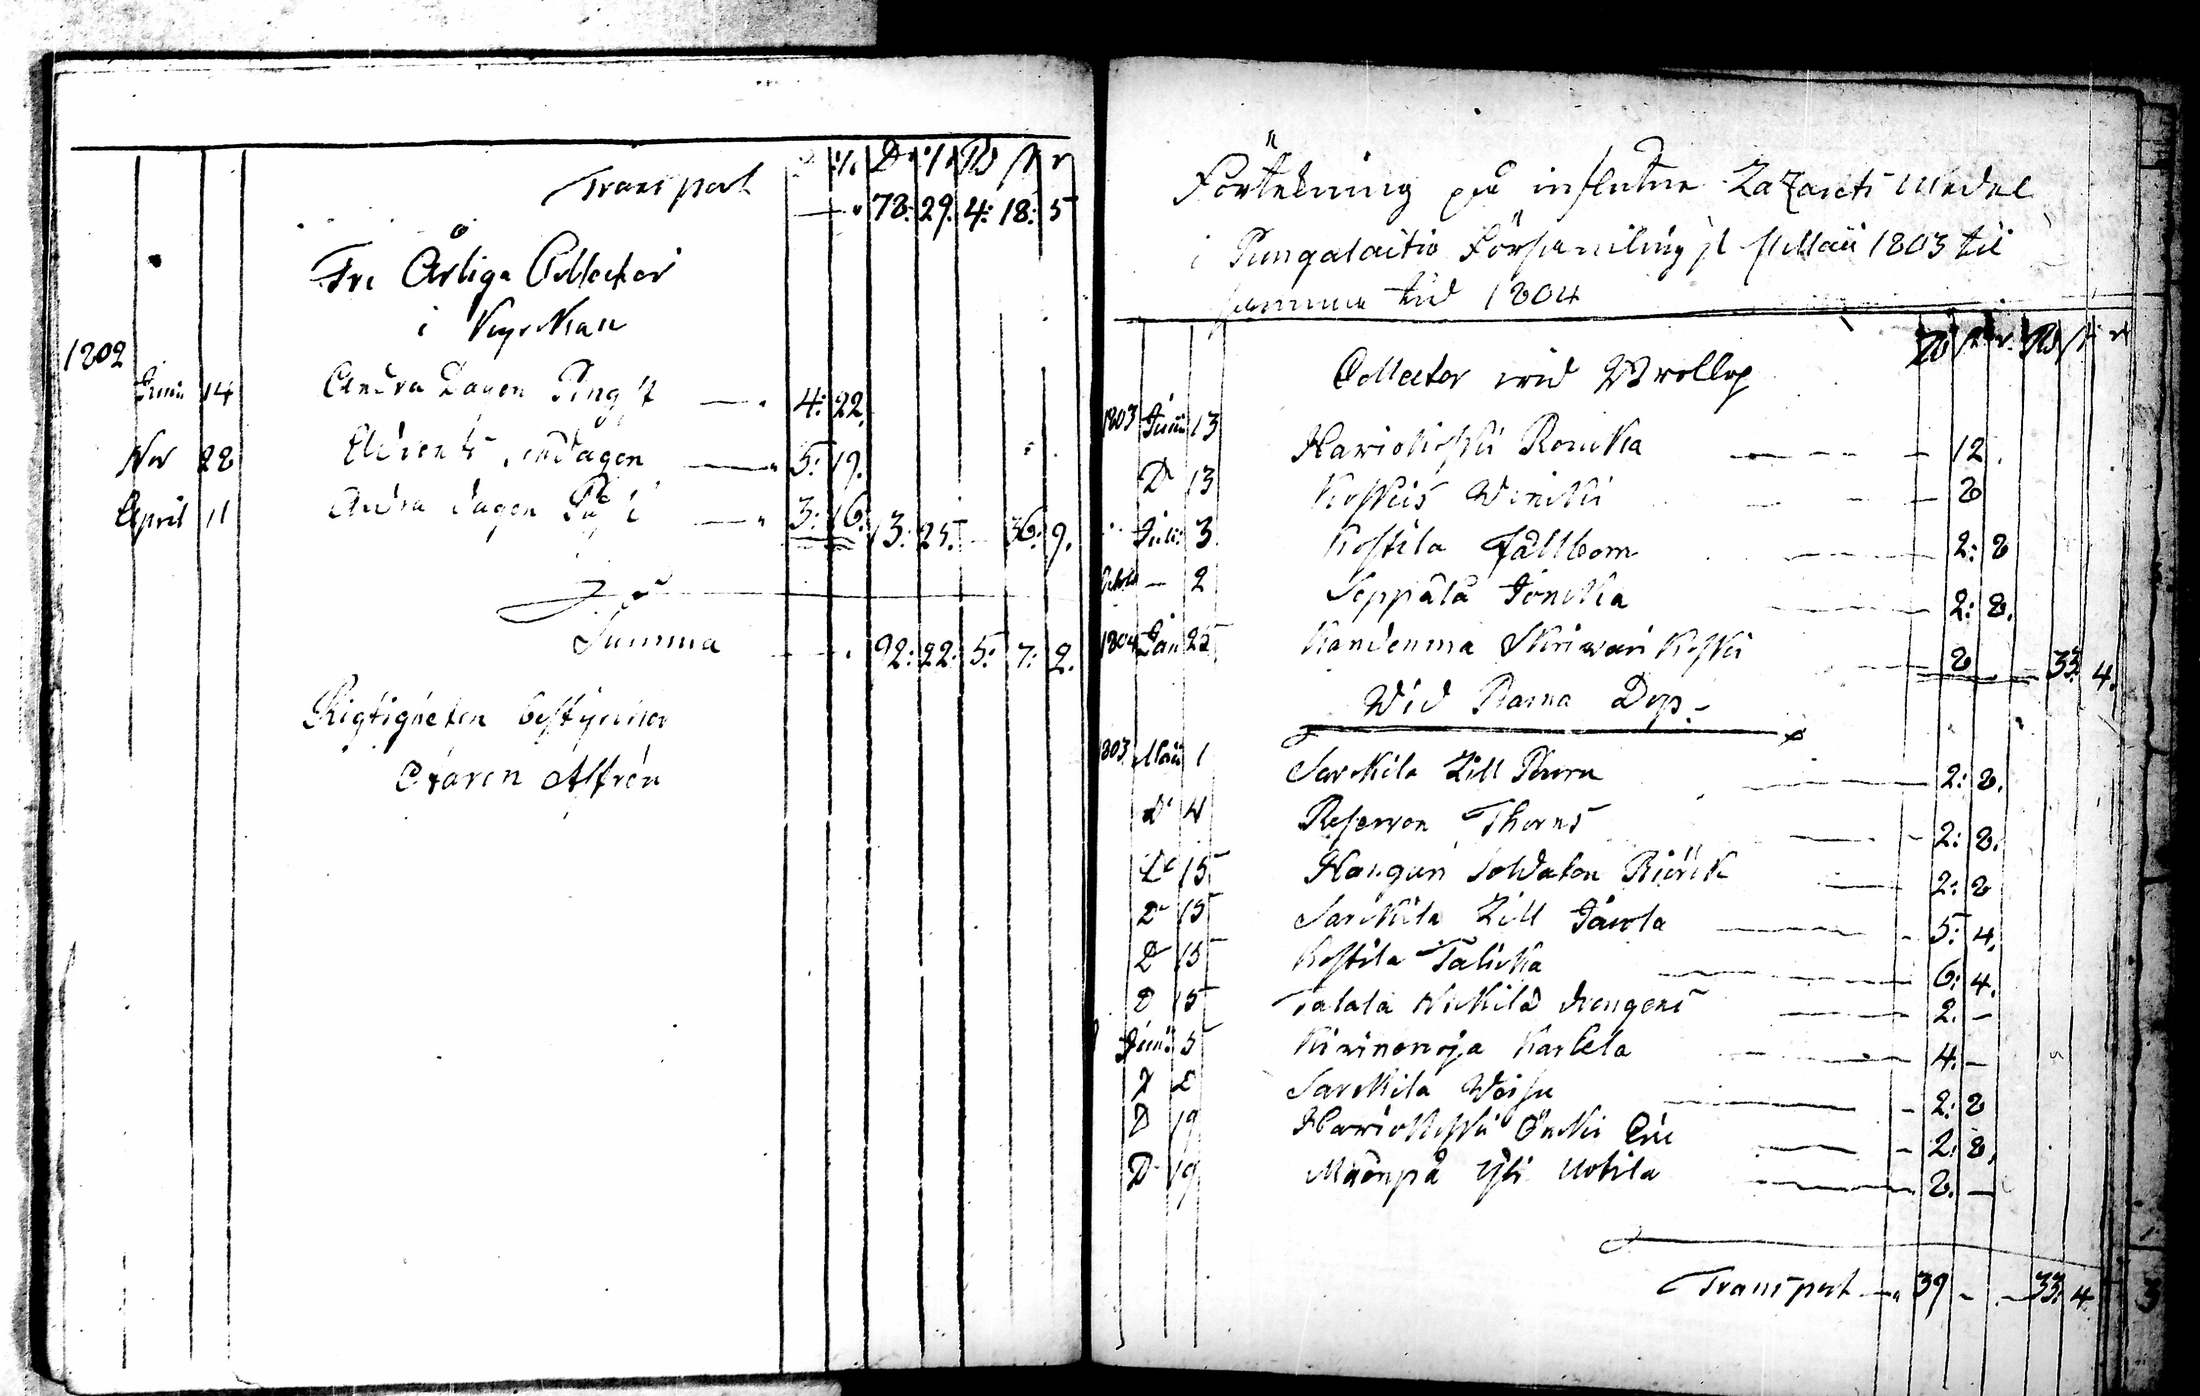 Transport — 78: 29. 4: 18: 5
Tre Årliga Collecter
i Kyrckan
1802
Junii 14 Andra Dagen Pingst — 4: 22.
Nov 28 Advents söndagen — 5: 19.
April 11 Andra dagen Påsk — 3: 16. 13: 25. — 36: 9.
Summa — 92: 22. 5: 7: 2.
Rigtigheten bestyrcker
Alfrén
Förtekning på influtne Lazarets medel
i Pungalaitio Församling fr. Maii 1803 til
samma tid 1804
Collecter wid Bröllop
1803 Junii 13 Hariokoski Romcka — 12.
D 13 Koskis — 8
Julii 3 Kostila Fällbom — 2: 8
Octob — 2 Seppälä Jöncka — 2: 8.
1804 Jan 25 Kandenma Skriwari Koski — 8 — 33. 4.
Wid Barna Dop
1803 Maii 1 Sarckila Lill — 2: 8.
D 4 Reserven Thorns — 2: 8.
D 15 Hanguri Soldaten — 2: 8
D 15 Sarckila Lill Jawola — 5: 4.
D 15 Kostila Talicka — 6: 4.
D 15 Talala drengens — 2. —
Junii 5 Kirinenoja Kartela — 4. —
D D Sarckila — 2: 8
D 19 Hariokoski — 2: 8.
D 19 Mäenpä Yli Uotila — 2. —
Transport — 39 — — 33: 4